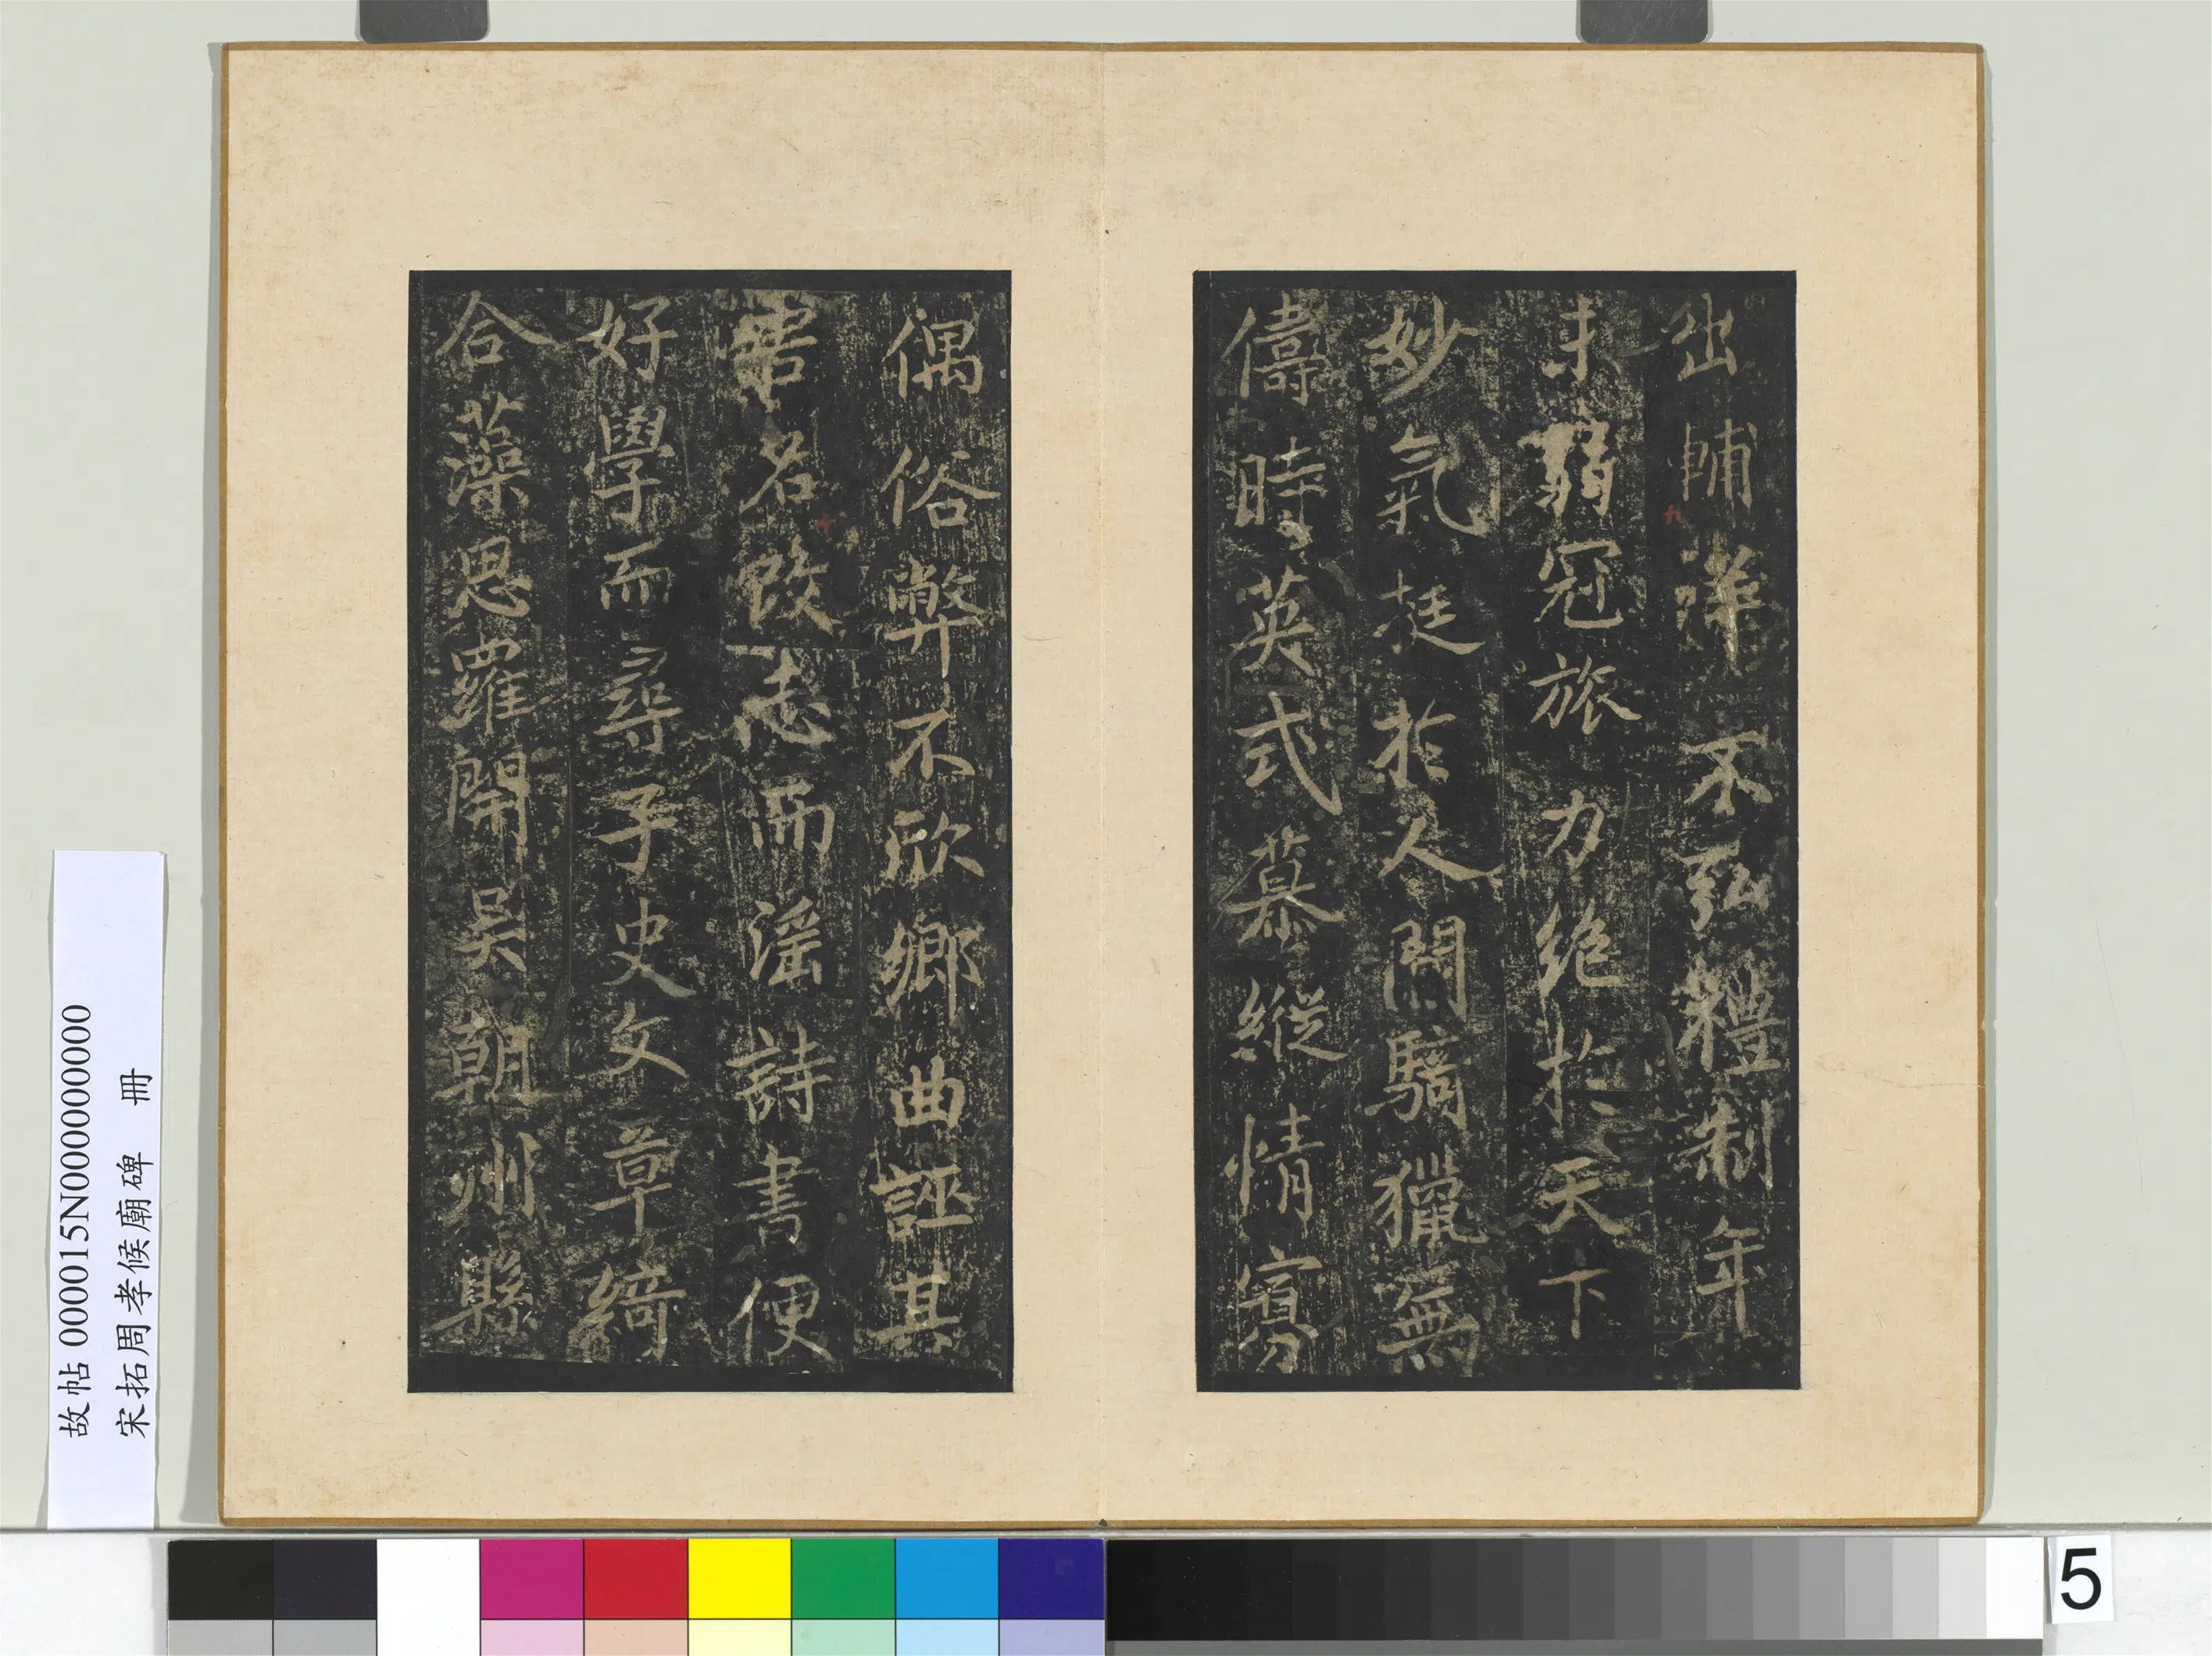 出輔不弘禮制年
未弱冠旅力絕於天下
妙氣挺於人間騎獵無
儔時英式慕縱情寡
偶俗弊不欣鄉曲誣其
害名改志而淫詩書便
好學而尋子史文章綺
合藻思羅開吳朝州縣
九
十
故帖 000015N000000000
宋拓周孝候廟碑 冊
5